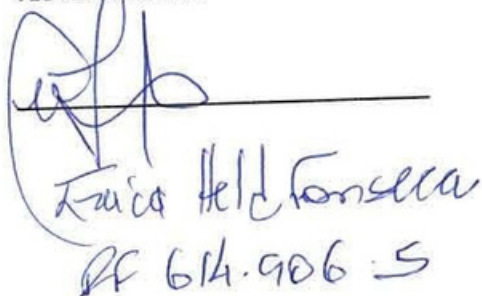 Erica Held Fonseca
RF 614.906.5